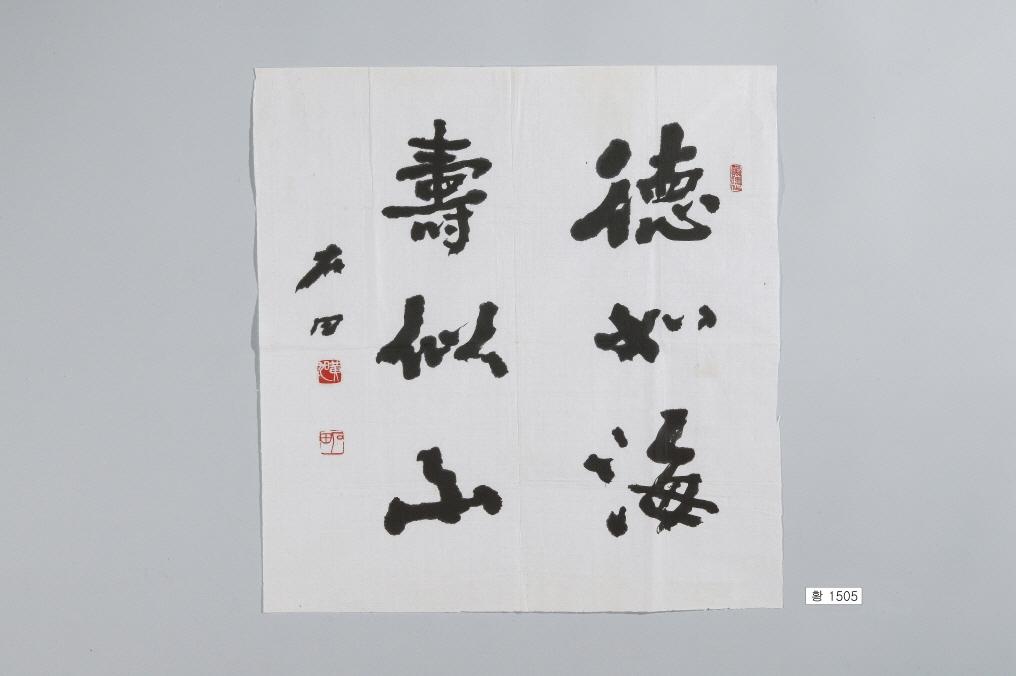 德如海
壽似山
石田
石田
황 1505